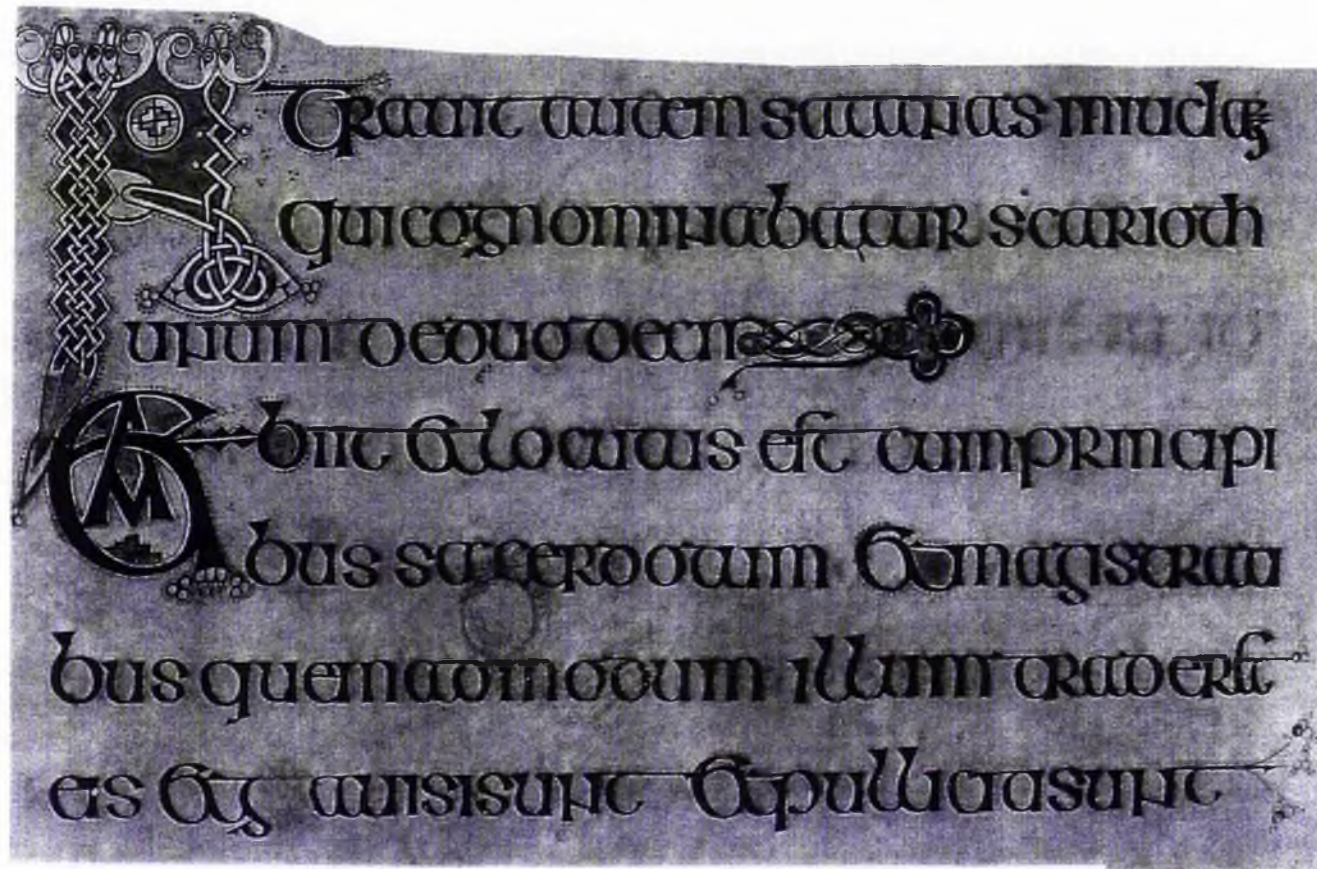 INtrauit autem satanas iniudam
qui cognominabatur scarioth
unum deduodecim
Et abiit et locutus est cumprincipi
bus sacerdotum et magistratu
bus quemadmodum illum traderet
eis et gauisisunt et pullicitisunt